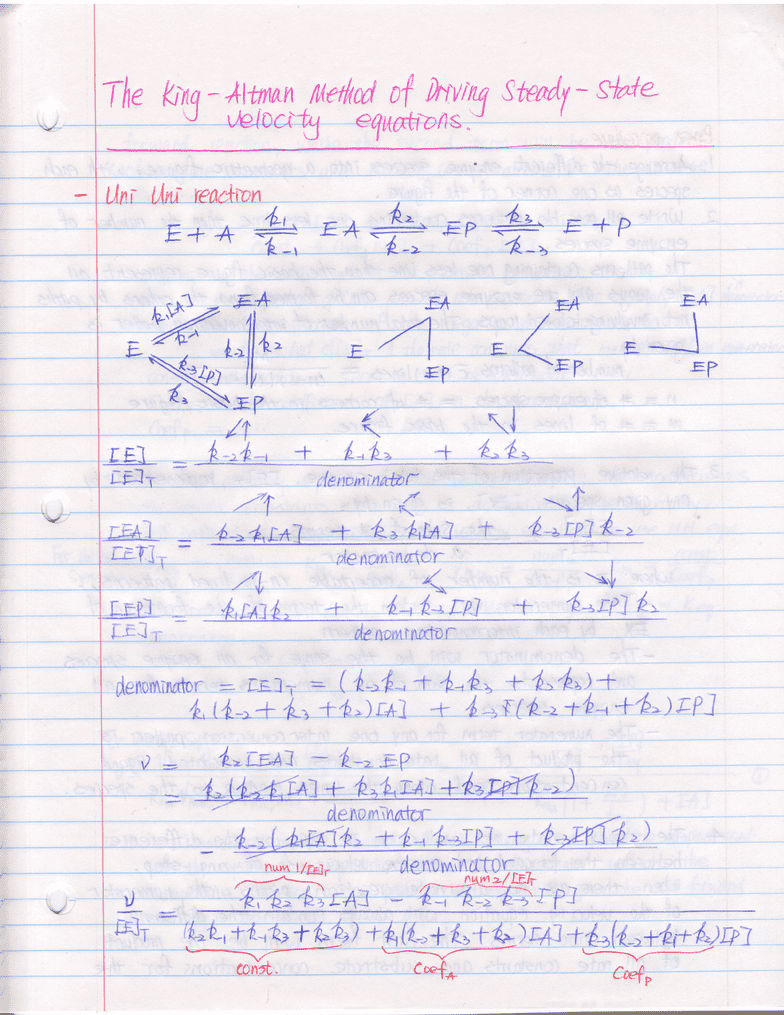 The King-Altman Method of Driving Steady-State
velocity equations.
- Uni Uni reaction
E + A ⇌ EA ⇌ EP ⇌ E + P
k₁ k₂ k₃
k₋₁ k₋₂ k₋₃
k₁[A] EA EA EA EA
k₋₁
E k₂ k₂ E E E
k₋₃[P]
k₃ EP EP EP EP
[E]/[E]T = (k₋₂k₋₁ + k₋₁k₃ + k₂k₃)/denominator
[EA]/[EP]T = (k₋₂k₁[A] + k₃k₁[A] + k₋₃[P]k₋₂)/denominator
[EP]/[E]T = (k₁[A]k₂ + k₋₁k₋₃[P] + k₋₃[P]k₂)/denominator
denominator = [E]T = (k₋₂k₋₁ + k₋₁k₃ + k₂k₃) +
k₁(k₋₂ + k₃ + k₂)[A] + k₋₃(k₋₂ + k₋₁ + k₂)[P]
v = k₂[EA] - k₋₂EP
= k₂(k₋₂k₁[A] + k₃k₁[A] + k₋₃[P]k₋₂)
denominator
- k₋₂(k₁[A]k₂ + k₋₁k₋₃[P] + k₋₃[P]k₂)
denominator
num 1/[E]T num 2/[E]T
v/[E]T = (k₁k₂k₃[A] - k₋₁k₋₂k₋₃[P])/
(k₋₂k₋₁ + k₋₁k₃ + k₂k₃) + k₁(k₋₂ + k₃ + k₂)[A] + k₋₃(k₋₂ + k₋₁ + k₂)[P]
const. Coef A Coef P